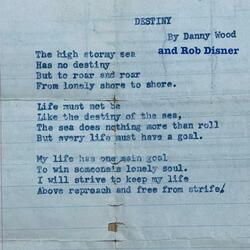 DESTINY
By Danny Wood
and Rob Disner
The high stormy sea
Has no destiny
But to roar and roar
From lonely shore to shore.
Life must not be
Like the destiny of the sea,
The sea does nothing more than roll
But every life must have a goal.
My life has one main goal
To win someone's lonely soul.
I will strive to keep my life
Above reproach and free from strife.